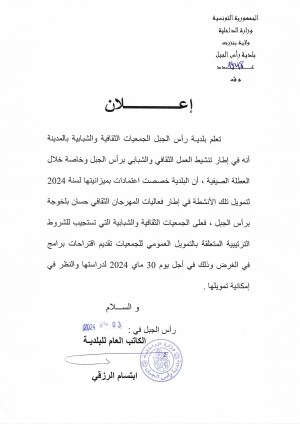 الجمهورية التونسية
وزارة الداخلية
ولاية بنزرت
بلدية رأس الجبل
إعـــــــلان
تعلم بلدية رأس الجبل الجمعيات الثقافية والشبابية بالمدينة
أنه في إطار تنشيط العمل الثقافي والشبابي برأس الجبل وخاصة خلال
العطلة الصيفية ، أن البلدية خصصت اعتمادات بميزانيتها لسنة 2024
لتمويل تلك الأنشطة في إطار فعاليات المهرجان الثقافي حسان بلخوجة
برأس الجبل ، فعلى الجمعيات الثقافية والشبابية التي تستجيب للشروط
الترتيبية المتعلقة بالتمويل العمومي للجمعيات تقديم اقتراحات برامج
في الغرض وذلك في أجل يوم 30 ماي 2024 لدراستها والنظر في
إمكانية تمويلها .
و الســـلام
رأس الجبل في : 03 ماي 2024
الكاتب العام للبلدية
ابتسام الرزقي